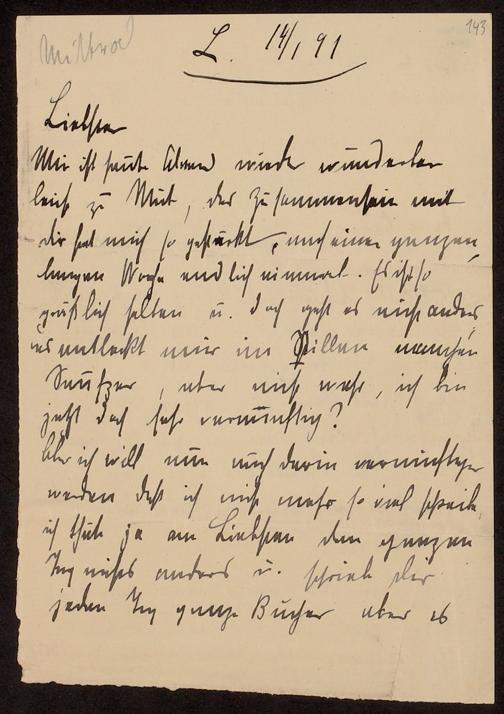 143
Mittwoch
L. 14/1 91
Liebster
Mir ist heute Abend wieder wunderbar
leicht zu Mut, das Zusammensein mit
dir hat mich so gestärkt, nach einer ganzen,
langen Woche endlich einmal. Es ist so
gräßlich selten u. doch geht es nicht anders,
es entlockt mir im Stillen manchen
Seufzer, aber nicht wahr, ich bin
jetzt doch sehr vernünftig?
Aber ich will nun auch darin vernünftiger
werden daß ich nicht mehr so viel schreibe,
ich thäte ja am Liebsten den ganzen
Tag nichts anders u. schrieb dir
jeden Tag ganze Bücher aber es